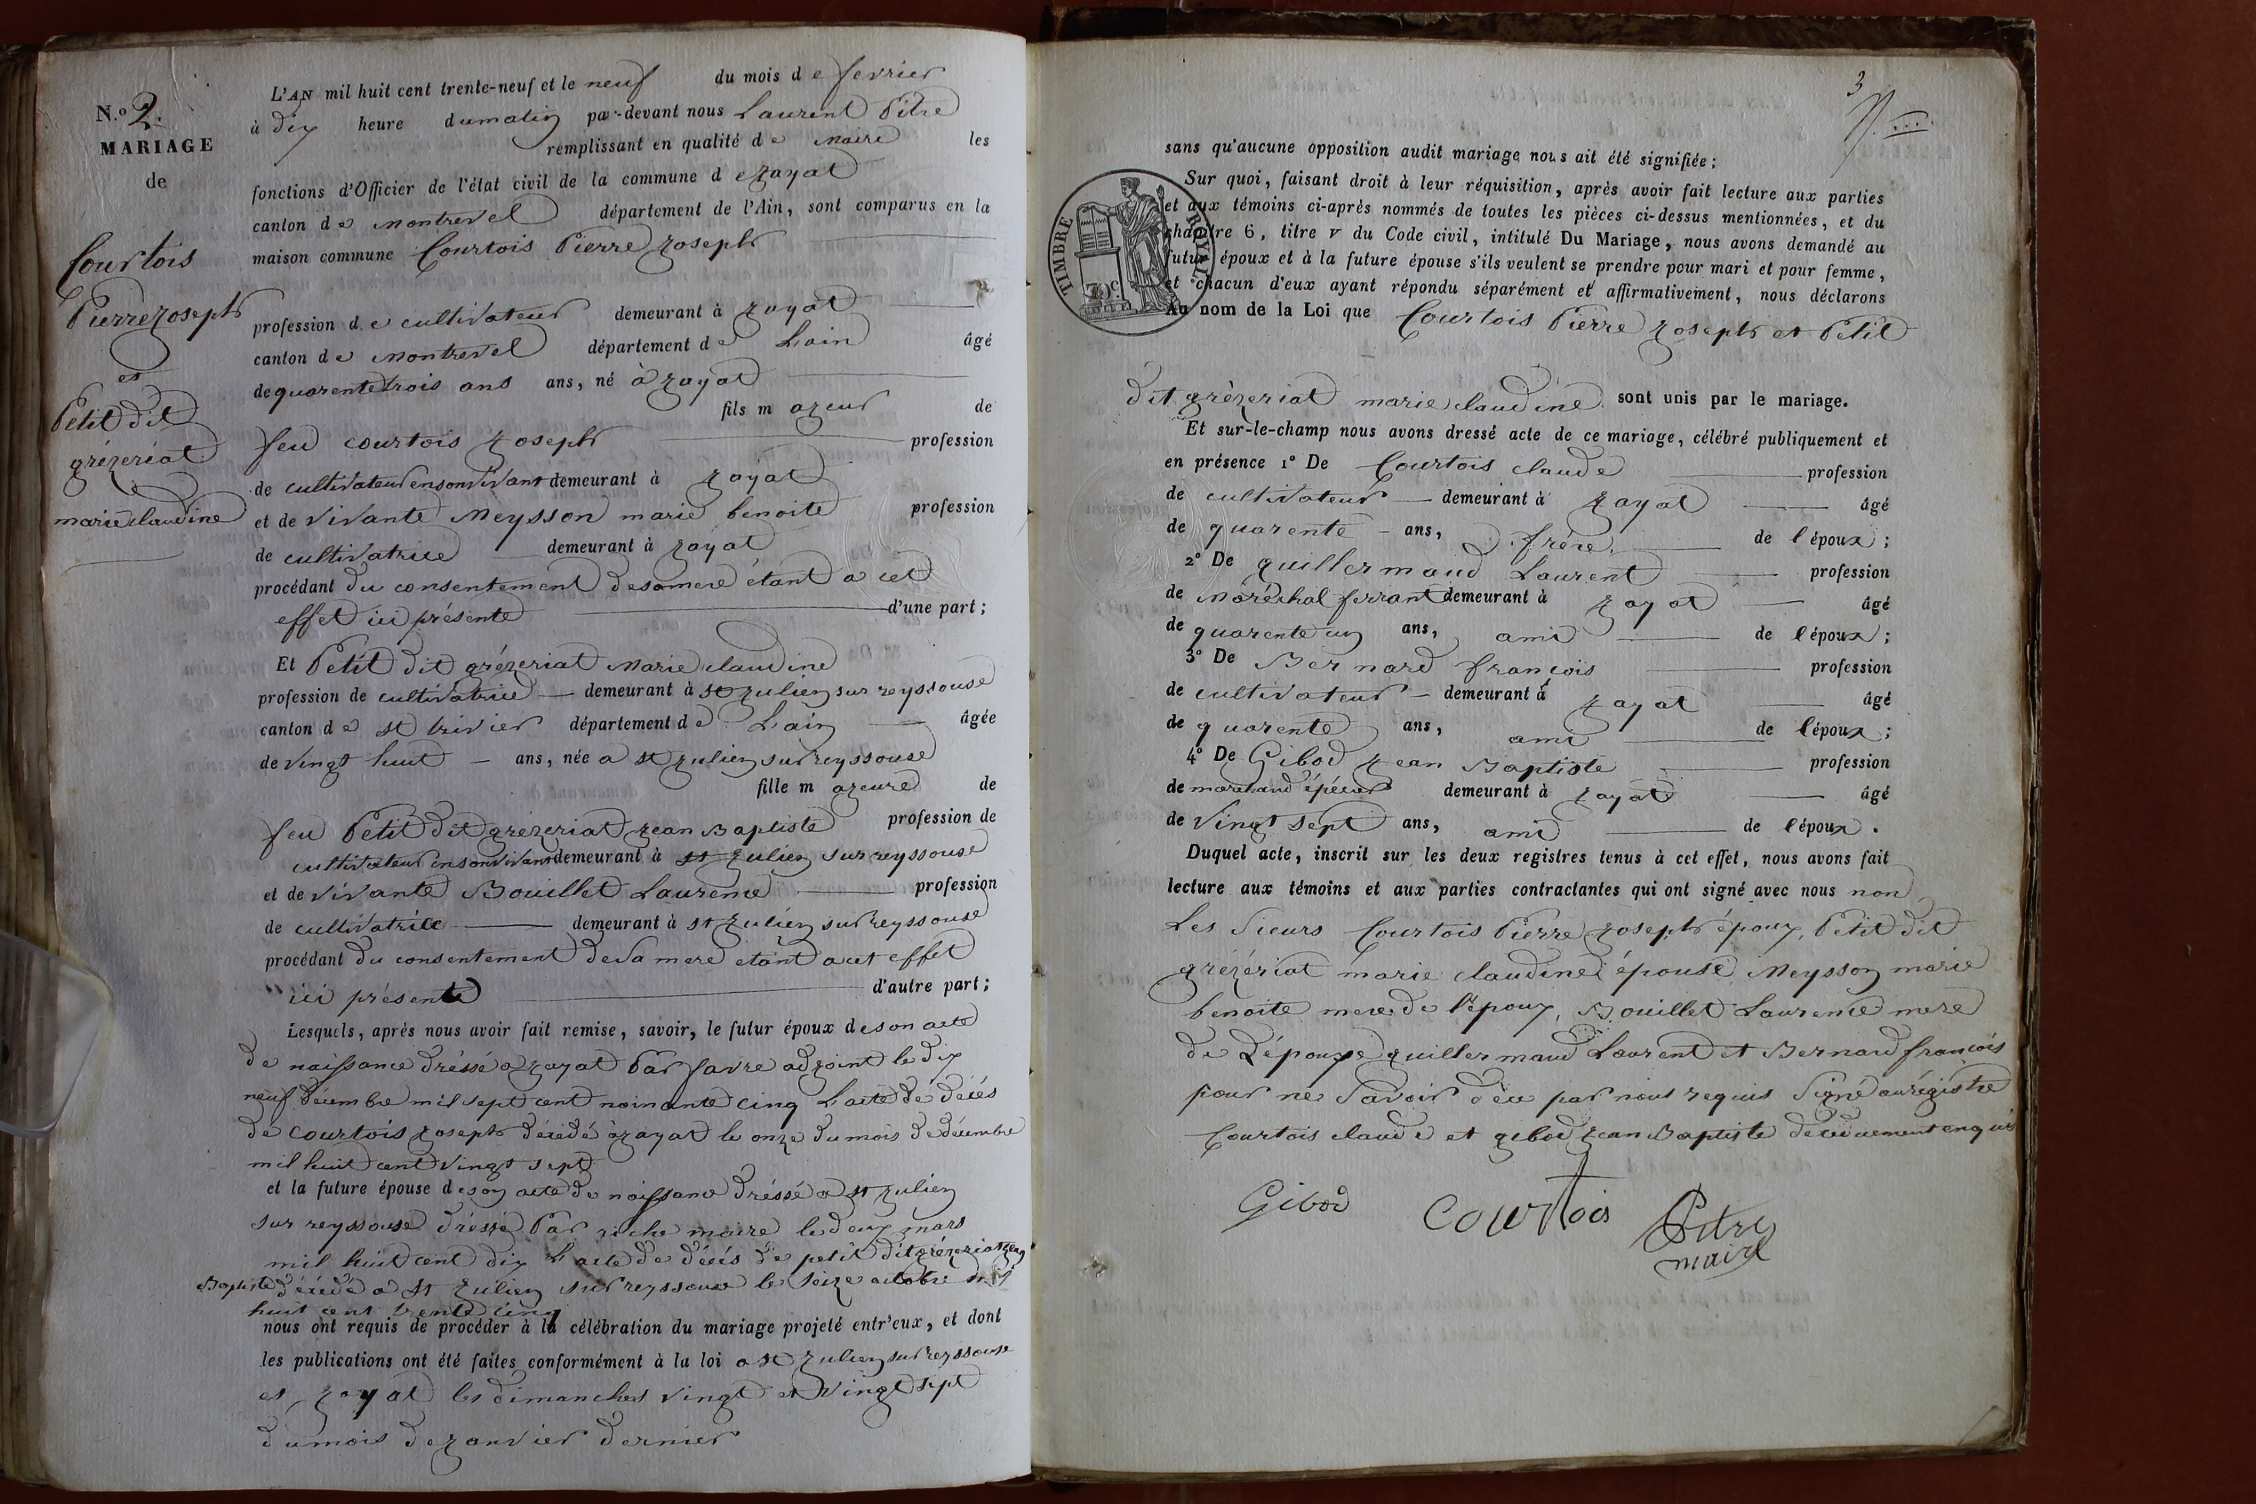 N.o 2.
MARIAGE
de
Courtois
Pierre Joseph
et
Petit dit
grézeriat
marie claudine
L'AN mil huit cent trente-neuf et le neuf du mois de fevrier
à dix heure du matin par-devant nous Laurent Pitre
remplissant en qualité de Maire les
fonctions d'Officier de l'état civil de la commune de Jayat
canton de Montrevel département de l'Ain, sont comparus en la
maison commune Courtois Pierre Joseph
profession de cultivateur demeurant à Jayat
canton de Montrevel département de L'ain âgé
de quarente trois ans ans, né à Jayat
fils majeur de
feu courtois Joseph profession
de cultivateur en son vivant demeurant à Jayat
et de vivante Meysson marie benoite profession
de cultivatrice demeurant à Jayat
procédant du consentement de sa mere étant a cet
effet ici présente d'une part;
Et Petit dit grézeriat Marie claudine
profession de cultivatrice demeurant à st Julien sur reyssouse
canton de st trivier département de L'ain âgée
de vingt huit ans, née a st Julien sur reyssouse
fille majeure de
feu Petit dit grézeriat Jean Baptiste profession de
cultivateur en son vivant demeurant à st Julien sur reyssouse
et de vivante Bouillet Laurence profession
de cultivatrice demeurant à st Julien sur reyssouse
procédant du consentement de sa mere étant a cet effet
ici présente d'autre part;
Lesquels, après nous avoir fait remise, savoir, le futur époux de son acte
de naissance dréssé a Jayat Par favre adjoint le dix
neuf decembre mil sept cent noinante cinq L'acte de décés
de courtois Joseph décédé à Jayat le onze du mois de décembre
mil huit cent vingt sept
et la future épouse de son acte de naissance dréssé a st Julien
sur reyssouse dréssé Par riche maire le deux mars
mil huit cent dix L'acte de décés de petit dit grézeriat Jean
Baptiste décédé a st Julien sur reyssouse le seize octobre mil
huit cent trente cinq
nous ont requis de procéder à la célébration du mariage projeté entr'eux, et dont
les publications ont été faites conformément à la loi a st Julien sur reyssouse
et Jayat les dimanches vingt et vingt sept
du mois de Janvier dernier
3
TIMBRE ROYAL
sans qu'aucune opposition audit mariage nous ait été signifiée;
Sur quoi, faisant droit à leur réquisition, après avoir fait lecture aux parties
et aux témoins ci-après nommés de toutes les pièces ci-dessus mentionnées, et du
chapitre 6, titre v du Code civil, intitulé Du Mariage, nous avons demandé au
futur époux et à la future épouse s'ils veulent se prendre pour mari et pour femme,
et chacun d'eux ayant répondu séparément et affirmativement, nous déclarons
Au nom de la Loi que Courtois Pierre Joseph et Petit
dit grèzeriat marie claudine sont unis par le mariage.
Et sur-le-champ nous avons dressé acte de ce mariage, célébré publiquement et
en présence 1° De Courtois claude profession
de cultivateur demeurant à Jayat âgé
de quarente ans, frére de l'époux;
2° De guillermaud Laurent profession
de Maréchal ferrant demeurant à Jayat âgé
de quarente un ans, ami de l'époux;
3° De Bernard françois profession
de cultivateur demeurant à Jayat âgé
de quarente ans, ami de l'époux;
4° De Gibod Jean Baptiste profession
de marchand épicier demeurant à Jayat âgé
de vingt sept ans, ami de l'époux.
Duquel acte, inscrit sur les deux registres tenus à cet effet, nous avons fait
lecture aux témoins et aux parties contractantes qui ont signé avec nous non
Les sieurs Courtois Pierre Joseph époux, Petit dit
grézériat marie claudine épouse, Meysson marie
benoite mere de l'époux, Bouillet Laurence mere
de L'épouse guillermaud Laurent et Bernard françois
pour ne savoir de ce par nous requis Signé au régistre
Courtois claude et gibod Jean Baptiste de ce duement enquis
Gibod Courtois Pitre
maire